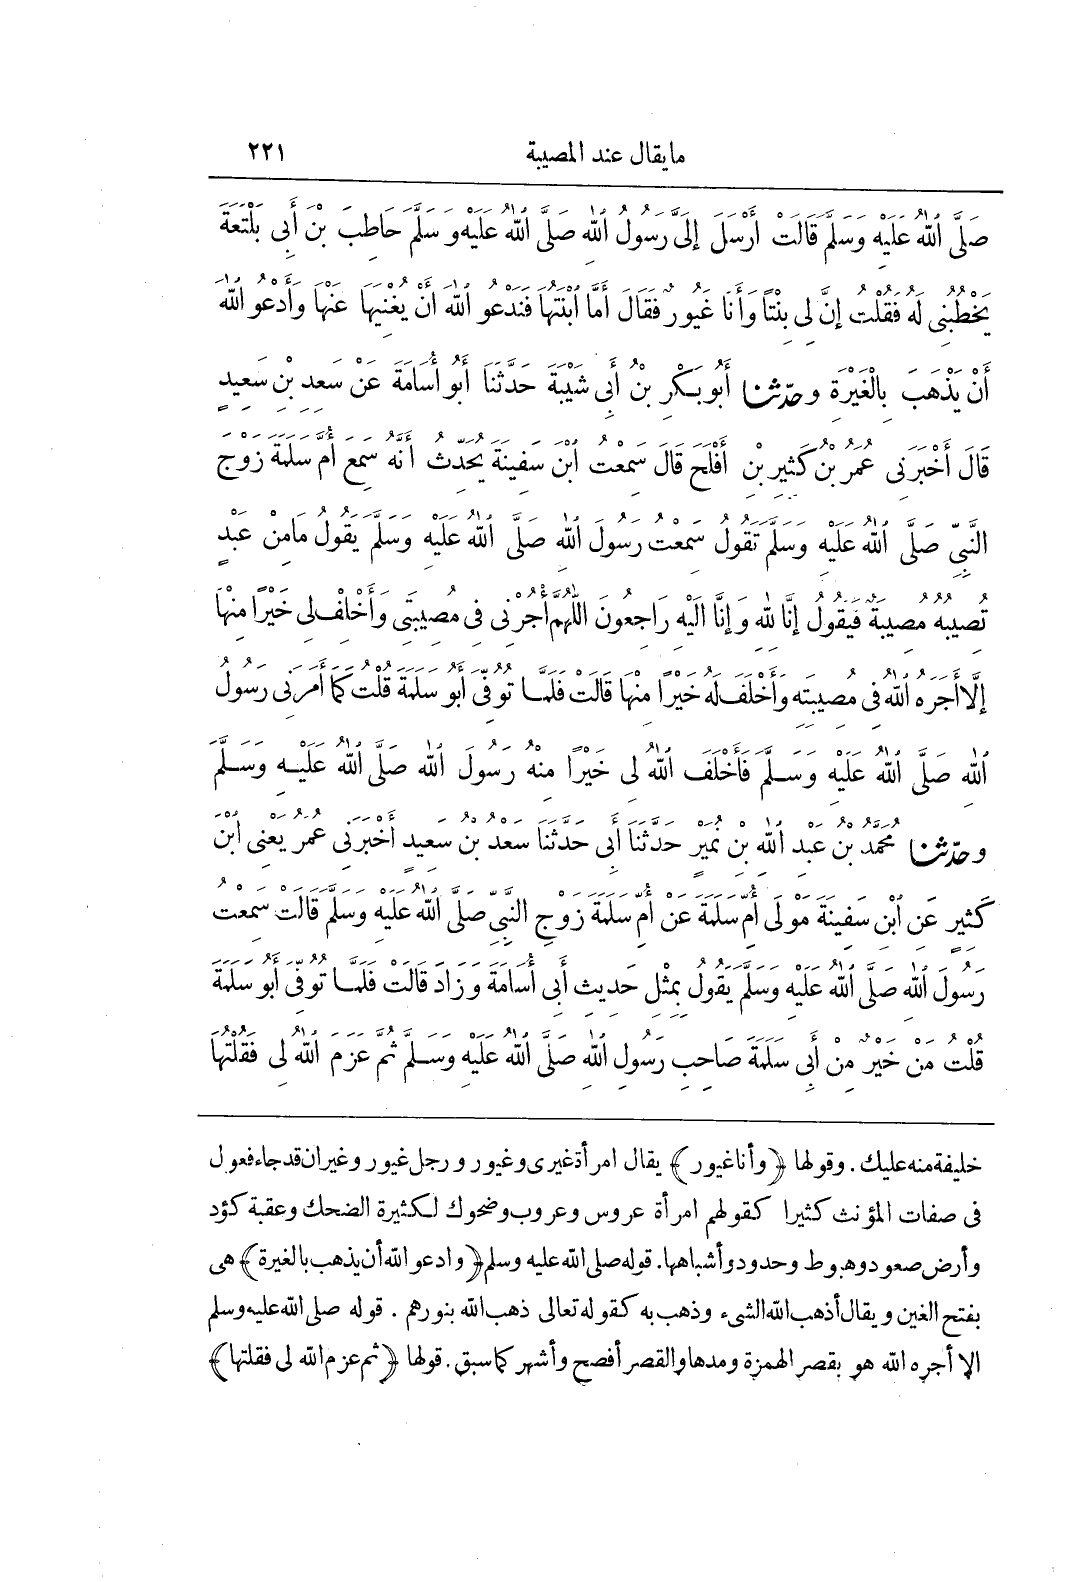 مايقال عند المصيبة ٢٢١
صَلَّى اللهُ عَلَيْهِ وَسَلَّمَ قَالَتْ أَرْسَلَ إِلَىَّ رَسُولُ اللهِ صَلَّى اللهُ عَلَيْهِ وَسَلَّمَ حَاطِبَ بْنَ أَبِى بَلْتَعَةَ
يَخْطُبُنِى لَهُ فَقُلْتُ إِنَّ لِى بِنْتًا وَأَنَا غَيُورٌ فَقَالَ أَمَّا ابْنَتُهَا فَنَدْعُو اللهَ أَنْ يُغْنِيَهَا عَنْهَا وَأَدْعُو اللهَ
أَنْ يَذْهَبَ بِالْغَيْرَةِ وحدّثنا أَبُو بَكْرِ بْنُ أَبِى شَيْبَةَ حَدَّثَنَا أَبُو أُسَامَةَ عَنْ سَعْدِ بْنِ سَعِيدٍ
قَالَ أَخْبَرَنِى عُمَرُ بْنُ كَثِيرِ بْنِ أَفْلَحَ قَالَ سَمِعْتُ ابْنَ سَفِينَةَ يُحَدِّثُ أَنَّهُ سَمِعَ أُمَّ سَلَمَةَ زَوْجَ
النَّبِيِّ صَلَّى اللهُ عَلَيْهِ وَسَلَّمَ تَقُولُ سَمِعْتُ رَسُولَ اللهِ صَلَّى اللهُ عَلَيْهِ وَسَلَّمَ يَقُولُ مَامِنْ عَبْدٍ
تُصِيبُهُ مُصِيبَةٌ فَيَقُولُ إِنَّا لِلهِ وَإِنَّا إِلَيْهِ رَاجِعُونَ اللّٰهُمَّ أْجُرْنِى فِى مُصِيبَتِى وَأَخْلِفْ لِى خَيْرًا مِنْهَا
إِلَّا أَجَرَهُ اللهُ فِى مُصِيبَتِهِ وَأَخْلَفَ لَهُ خَيْرًا مِنْهَا قَالَتْ فَلَمَّا تُوُفِّىَ أَبُو سَلَمَةَ قُلْتُ كَمَا أَمَرَنِى رَسُولُ
اللهِ صَلَّى اللهُ عَلَيْهِ وَسَلَّمَ فَأَخْلَفَ اللهُ لِى خَيْرًا مِنْهُ رَسُولَ اللهِ صَلَّى اللهُ عَلَيْهِ وَسَلَّمَ
وحدّثنا مُحَمَّدُ بْنُ عَبْدِ اللهِ بْنِ نُمَيْرٍ حَدَّثَنَا أَبِى حَدَّثَنَا سَعْدُ بْنُ سَعِيدٍ أَخْبَرَنِى عُمَرُ يَعْنِى ابْنَ
كَثِيرٍ عَنِ ابْنِ سَفِينَةَ مَوْلَى أُمِّ سَلَمَةَ عَنْ أُمِّ سَلَمَةَ زَوْجِ النَّبِيِّ صَلَّى اللهُ عَلَيْهِ وَسَلَّمَ قَالَتْ سَمِعْتُ
رَسُولَ اللهِ صَلَّى اللهُ عَلَيْهِ وَسَلَّمَ يَقُولُ بِمِثْلِ حَدِيثِ أَبِى أُسَامَةَ وَزَادَ قَالَتْ فَلَمَّا تُوُفِّىَ أَبُو سَلَمَةَ
قُلْتُ مَنْ خَيْرٌ مِنْ أَبِى سَلَمَةَ صَاحِبِ رَسُولِ اللهِ صَلَّى اللهُ عَلَيْهِ وَسَلَّمَ ثُمَّ عَزَمَ اللهُ لِى فَقُلْتُهَا
خليفة منه عليك . وقولها ﴿وأنا غيور﴾ يقال امرأة غيرى وغيور ورجل غيور وغيران قد جاء فعول
فى صفات المؤنث كثيرا كقولهم امرأة عروس وعروب وضحوك لكثيرة الضحك وعقبة كؤد
وأرض صعود وهبوط وحدود وأشباهها. قوله صلى الله عليه وسلم ﴿وادعو الله أن يذهب بالغيرة﴾ هى
بفتح الغين ويقال أذهب الله الشىء وذهب به كقوله تعالى ذهب الله بنورهم . قوله صلى الله عليه وسلم
الا أجره الله هو بقصر الهمزة ومدها والقصر أفصح وأشهر كما سبق . قولها ﴿ثم عزم الله لى فقلتها﴾